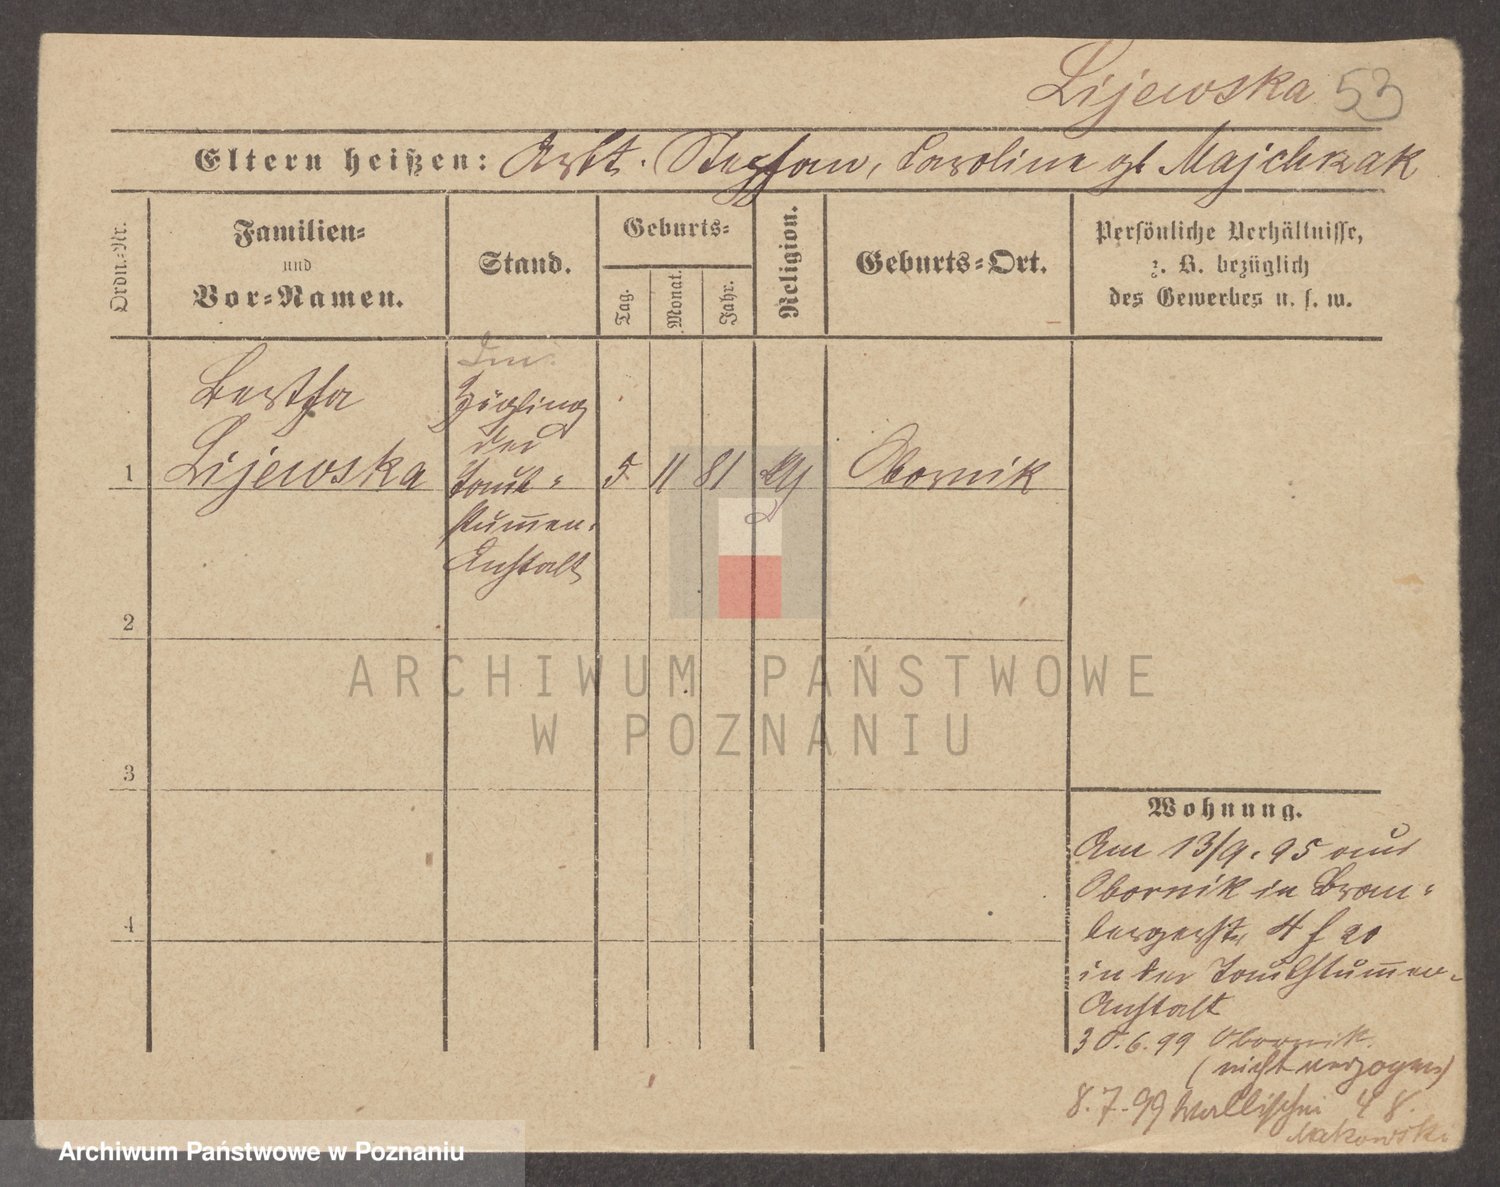 Lijewska 53
Eltern heißen: Arbt. Stephan, Caroline gb Majchrzak
Ordn.-Nr.
Familien-
und
Vor-Namen.
Stand.
Geburts-
Tag.
Monat.
Jahr.
Religion.
Geburts-Ort.
Persönliche Verhältnisse,
z. B. bezüglich
des Gewerbes u. s. w.
Bertha
Zögling
der
1 Lijewska Taub- 5 11 81 Obornik
stummen-
Anstalt
2
ARCHIWUM PAŃSTWOWE
W POZNANIU
3
Wohnung.
Am 13/9.95 aus
Obornik in Brom-
bergerstr. 4 f 20
in der Taubstummen-
Anstalt
30.6.99 Obornik.
(nicht verzogen)
8.7.99 Wallischei 48.
Makowski
4
Archiwum Państwowe w Poznaniu